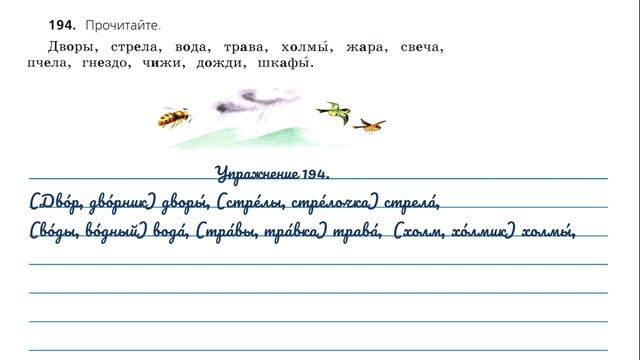 194. Прочитайте.
Дворы, стрела, вода, трава, холмы́, жара, свеча,
пчела, гнездо, чижи, дожди, шкафы́.
Упражнение 194.
(Дво́р, дво́рник) дворы́, (стре́лы, стре́лочка) стрела́,
(во́ды, во́дный) вода́, (тра́вы, тра́вка) трава́, (холм, хо́лмик) холмы́,